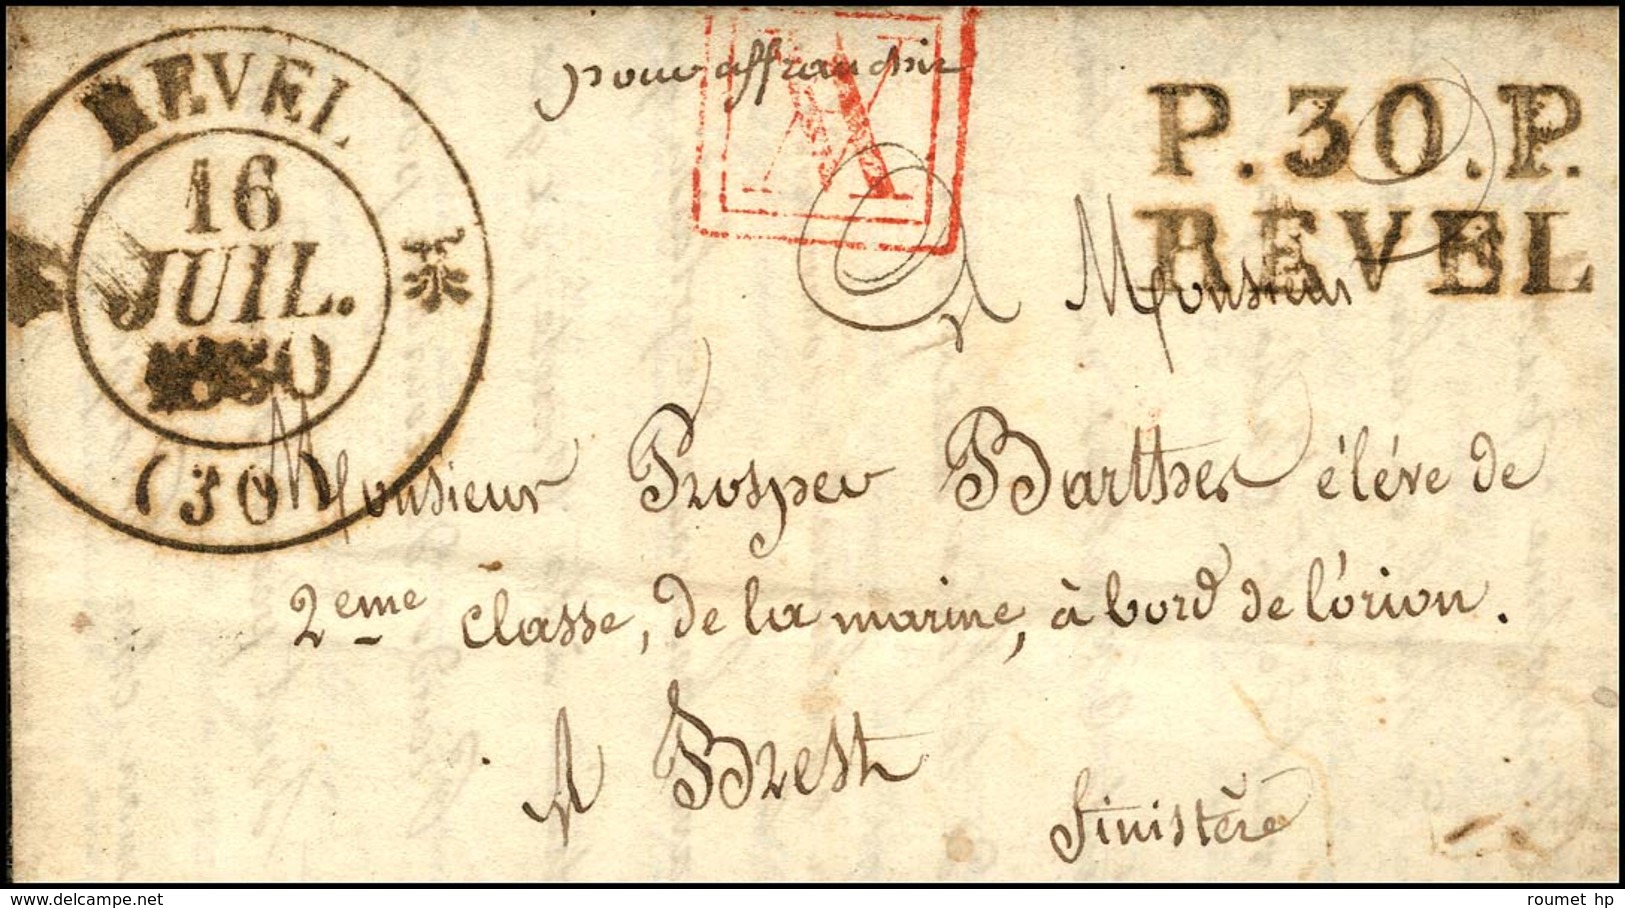 REVEL
16
JUIL.
1830
(30)
pour affranchir
A
P.30.P.
REVEL
A Monsieur
Monsieur Prosper Barthes éléve de
2eme classe, de la marine, à bord de l'orion.
A Brest
finistère
roumet hp